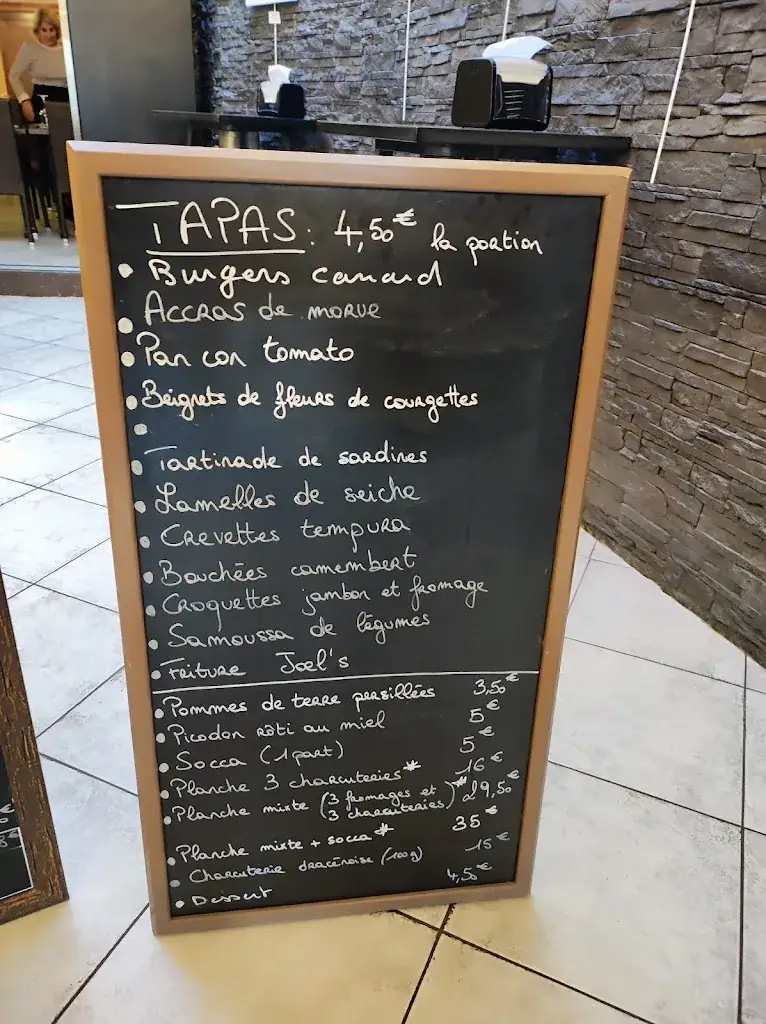 TAPAS: 4,50€ la portion
• Burgers canard
• Accras de morue
• Pan con tomato
• Beignets de fleurs de courgettes
•
• Tartinade de sardines
• Lamelles de seiche
• Crevettes tempura
• Bouchées camembert
• Croquettes jambon et fromage
• Samoussa de légumes
• Friture Joel's
• Pommes de terre persillées 3,50€
• Picodon rôti au miel 5€
• Socca (1 part) 5€
• Planche 3 charcuteries* 16€
• Planche mixte (3 fromages et 3 charcuteries)* 29,50€
• Planche mixte + socca* 35€
• Charcuterie dracénoise (100g) 15€
• Dessert 4,50€